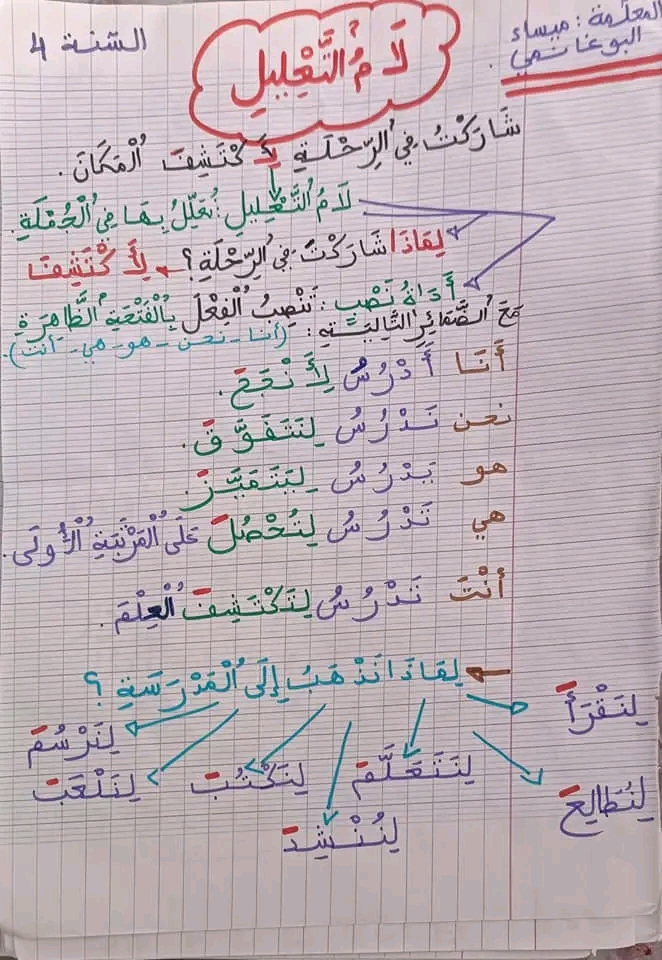 المعلمة : ميساء
البوغانمي .
السنة 4
لَامُ التَّعْلِيلِ
شَارَكْتُ فِي الرِّحْلَةِ لِأَكْتَشِفَ الْمَكَانَ .
لَامُ التَّعْلِيلِ : نُعَلِّلُ بِهَا فِي الْجُمْلَةِ.
لِمَاذَا شَارَكْتَ فِي الرِّحْلَةِ ؟ لِأَكْتَشِفَ
أَدَاةُ نَصْبٍ : تَنْصِبُ الْفِعْلَ بِالْفَتْحَةِ الظَّاهِرَةِ
مَعَ الضَّمَائِرِ التَّالِيَةِ : (أنا - نحن - هو - هي - أنت).
أَنَا أَدْرُسُ لِأَنْجَحَ .
نحن نَدْرُسُ لِنَتَفَوَّقَ .
هو يَدْرُسُ لِيَتَمَيَّزَ .
هي تَدْرُسُ لِتَحْصُلَ عَلَى الْمَرْتَبَةِ الْأُولَى .
أنْتَ تَدْرُسُ لِتَكْتَشِفَ الْعِلْمَ .
لِمَاذَا نَذْهَبُ إِلَى الْمَدْرَسَةِ ؟
لِنَقْرَأَ
لِنَرْسُمَ
لِنَتَعَلَّمَ
لِنَكْتُبَ
لِنَلْعَبَ
لِنُطَالِعَ
لِنُنْشِدَ